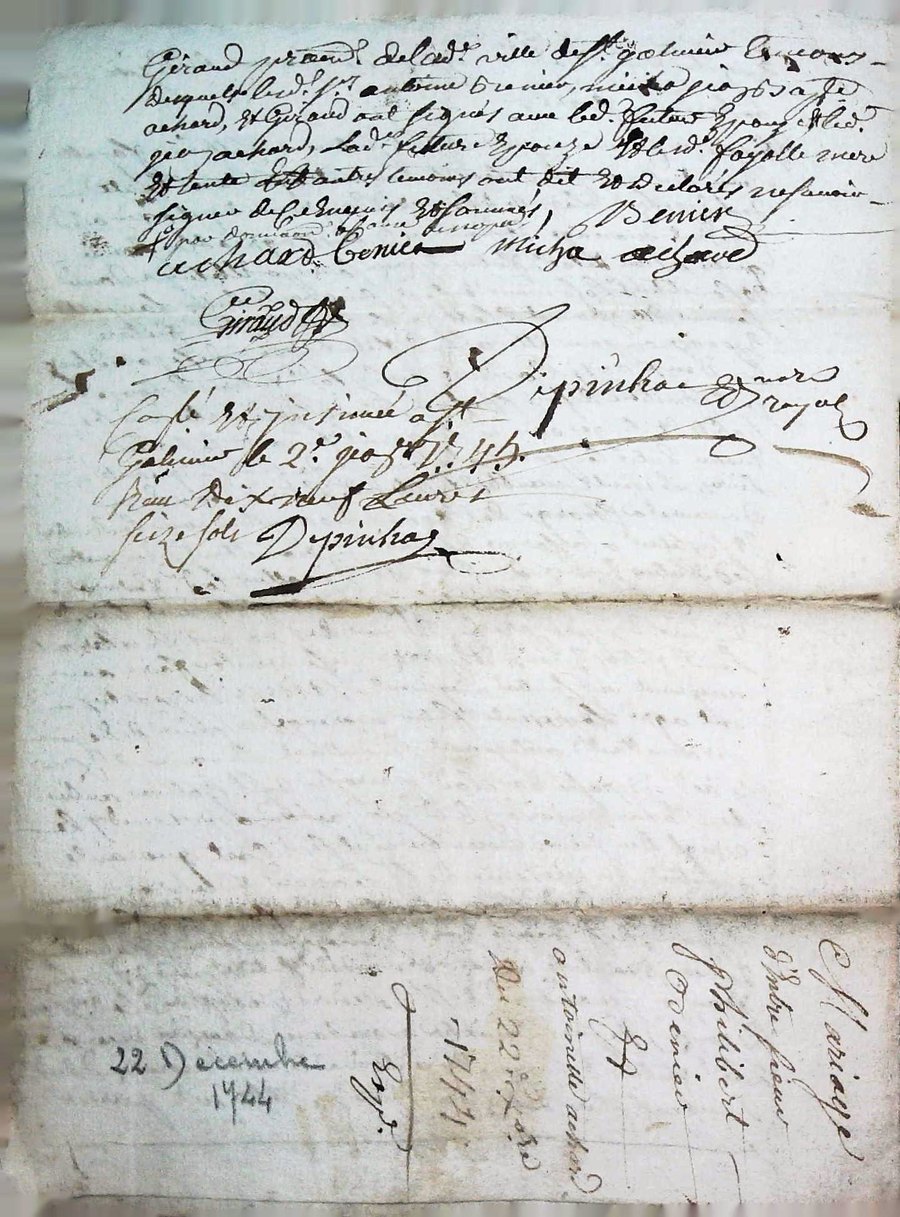 Giraud prat. de lad. ville de St. galmier temoins
desquels led. Sr. antoine
achard, et Giraud ont signés avec led. futur Epoux et led.
achard, Lad. future Epouze et lad. fayolle mere
et tente et autres temoins ont dit et declarés ne savoir
signer de ce enquis et sommes, Benier
achard Benier Micha achard
Giraud
Depinhac notre Royal
Conlé et insinué a St
Galmier le 2e. 1745.
Reçu dix neuf Livres
seize sols Depinhac
Mariage
D'Entre sieur
philibert
Et
antoinette achard
Du 22e. Xbre
1744
Expd.
22 Decembre
1744